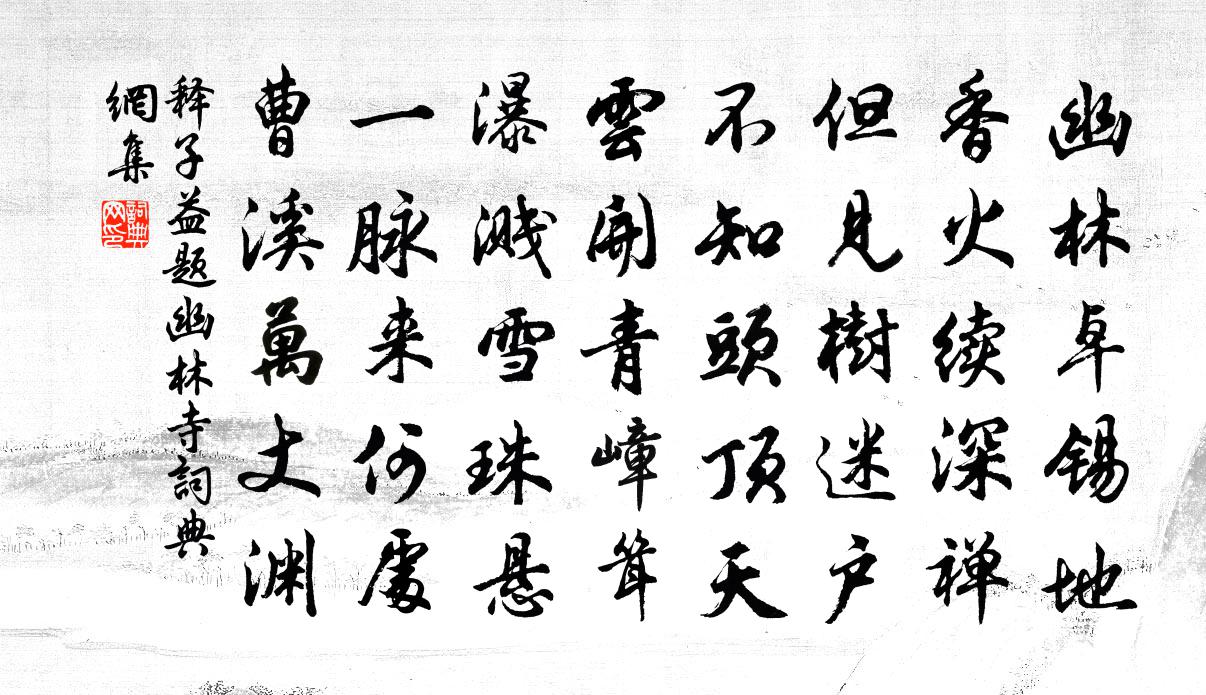 幽林卓锡地
香火续深禅
但见樹迷户
不知頭顶天
雲開青嶂耸
瀑溅雪珠悬
一脉来何處
曹溪萬丈渊
释子益题幽林寺詞典
網集
詞典
网印